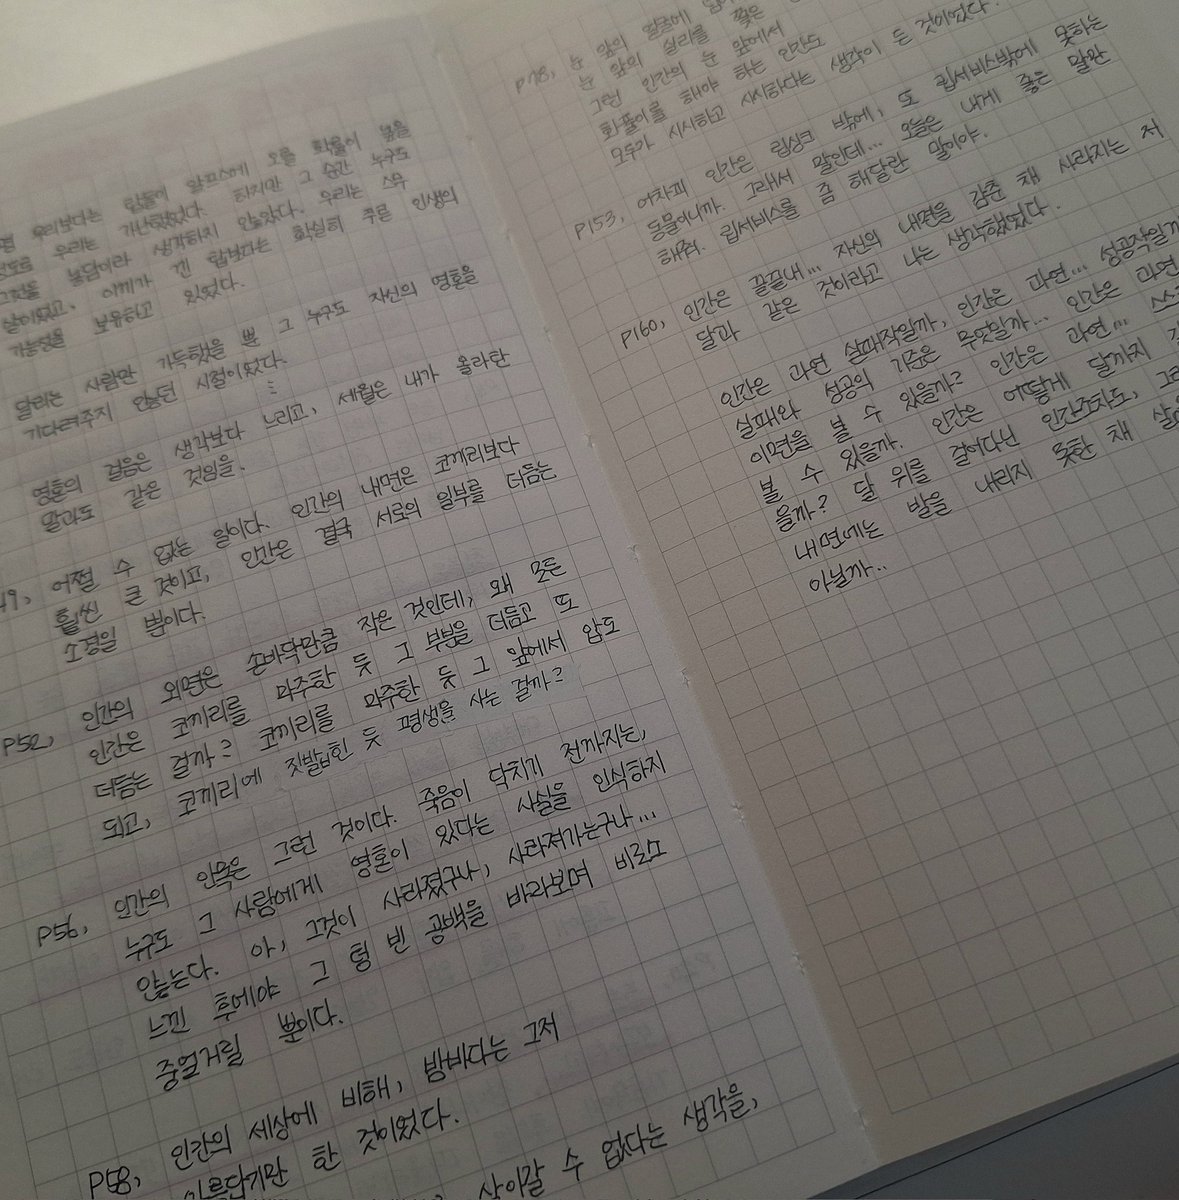 우리보다는 팀들이 알프스에 오를 확률이 높을
정도로 우리는 가난했었다. 하지만 그 순간 누구도
그것을 농담이라 생각하지 않았다. 우리는 스무
살이었고, 이끼가 낀 탑보다는 확실히 푸른 인생의
가능성을 보유하고 있었다.
달리는 사람만 가득했을 뿐 그 누구도 자신의 영혼을
기다려주지 않았던 시절이었다.
영혼의 걸음은 생각보다 느리고, 세월은 내가 올라탄
말과도 같은 것임을.
49, 어쩔 수 없는 일이다. 인간의 내면은 코끼리보다
훨씬 큰 것이고, 인간은 결국 서로의 일부를 더듬는
소경일 뿐이다.
P52, 인간의 외면은 손바닥만큼 작은 것인데, 왜 모든
인간은 코끼리를 마주한 듯 그 부분을 더듬고 또
더듬는 걸까? 코끼리를 마주한 듯 그 앞에서 압도
되고, 코끼리에 짓밟힌 듯 평생을 사는 걸까?
P56, 인간의 안목은 그런 것이다. 죽음이 닥치기 전까지는,
누구도 그 사람에게 영혼이 있다는 사실을 인식하지
않는다. 아, 그것이 사라졌구나, 사라져가는구나...
느낀 후에야 그 텅 빈 공백을 바라보며 비로소
중얼거릴 뿐이다.
P58, 인간의 세상에 비해, 밤바다는 그저
아름답기만 한 것이었다.
살아갈 수 없다는 생각을,
P78, 눈 앞의
눈 앞의 실리를 쫓은
그런 인간의 눈 앞에서
화풀이를 해야 하는 인간도
모두가 시시하고 시시하다는 생각이 든 것이었다.
P153, 어차피 인간은 립싱크 밖에, 또 립서비스밖에 못하는
동물이니까. 그래서 말인데... 오늘은 내게 좋은 말만
해줘. 립서비스를 좀 해달란 말이야.
P160, 인간은 끝끝내... 자신의 내면을 감춘 채 사라지는 저
달과 같은 것이라고 나는 생각했었다.
인간은 과연 실패작일까, 인간은 과연... 성공작일까
실패와 성공의 기준은 무엇일까... 인간은 과연
이면을 볼 수 있을까? 인간은 과연...
볼 수 있을까. 인간은 어떻게 달까지
을까? 달 위를 걸어다닌 인간조차도,
내면에는 발을 내리지 못한 채
아닐까..